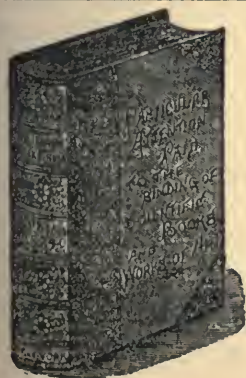 PARTICULAR
ATTENTION
PAID
TO THE
BINDING OF
SCIENTIFIC
BOOKS
AND
WORKS OF